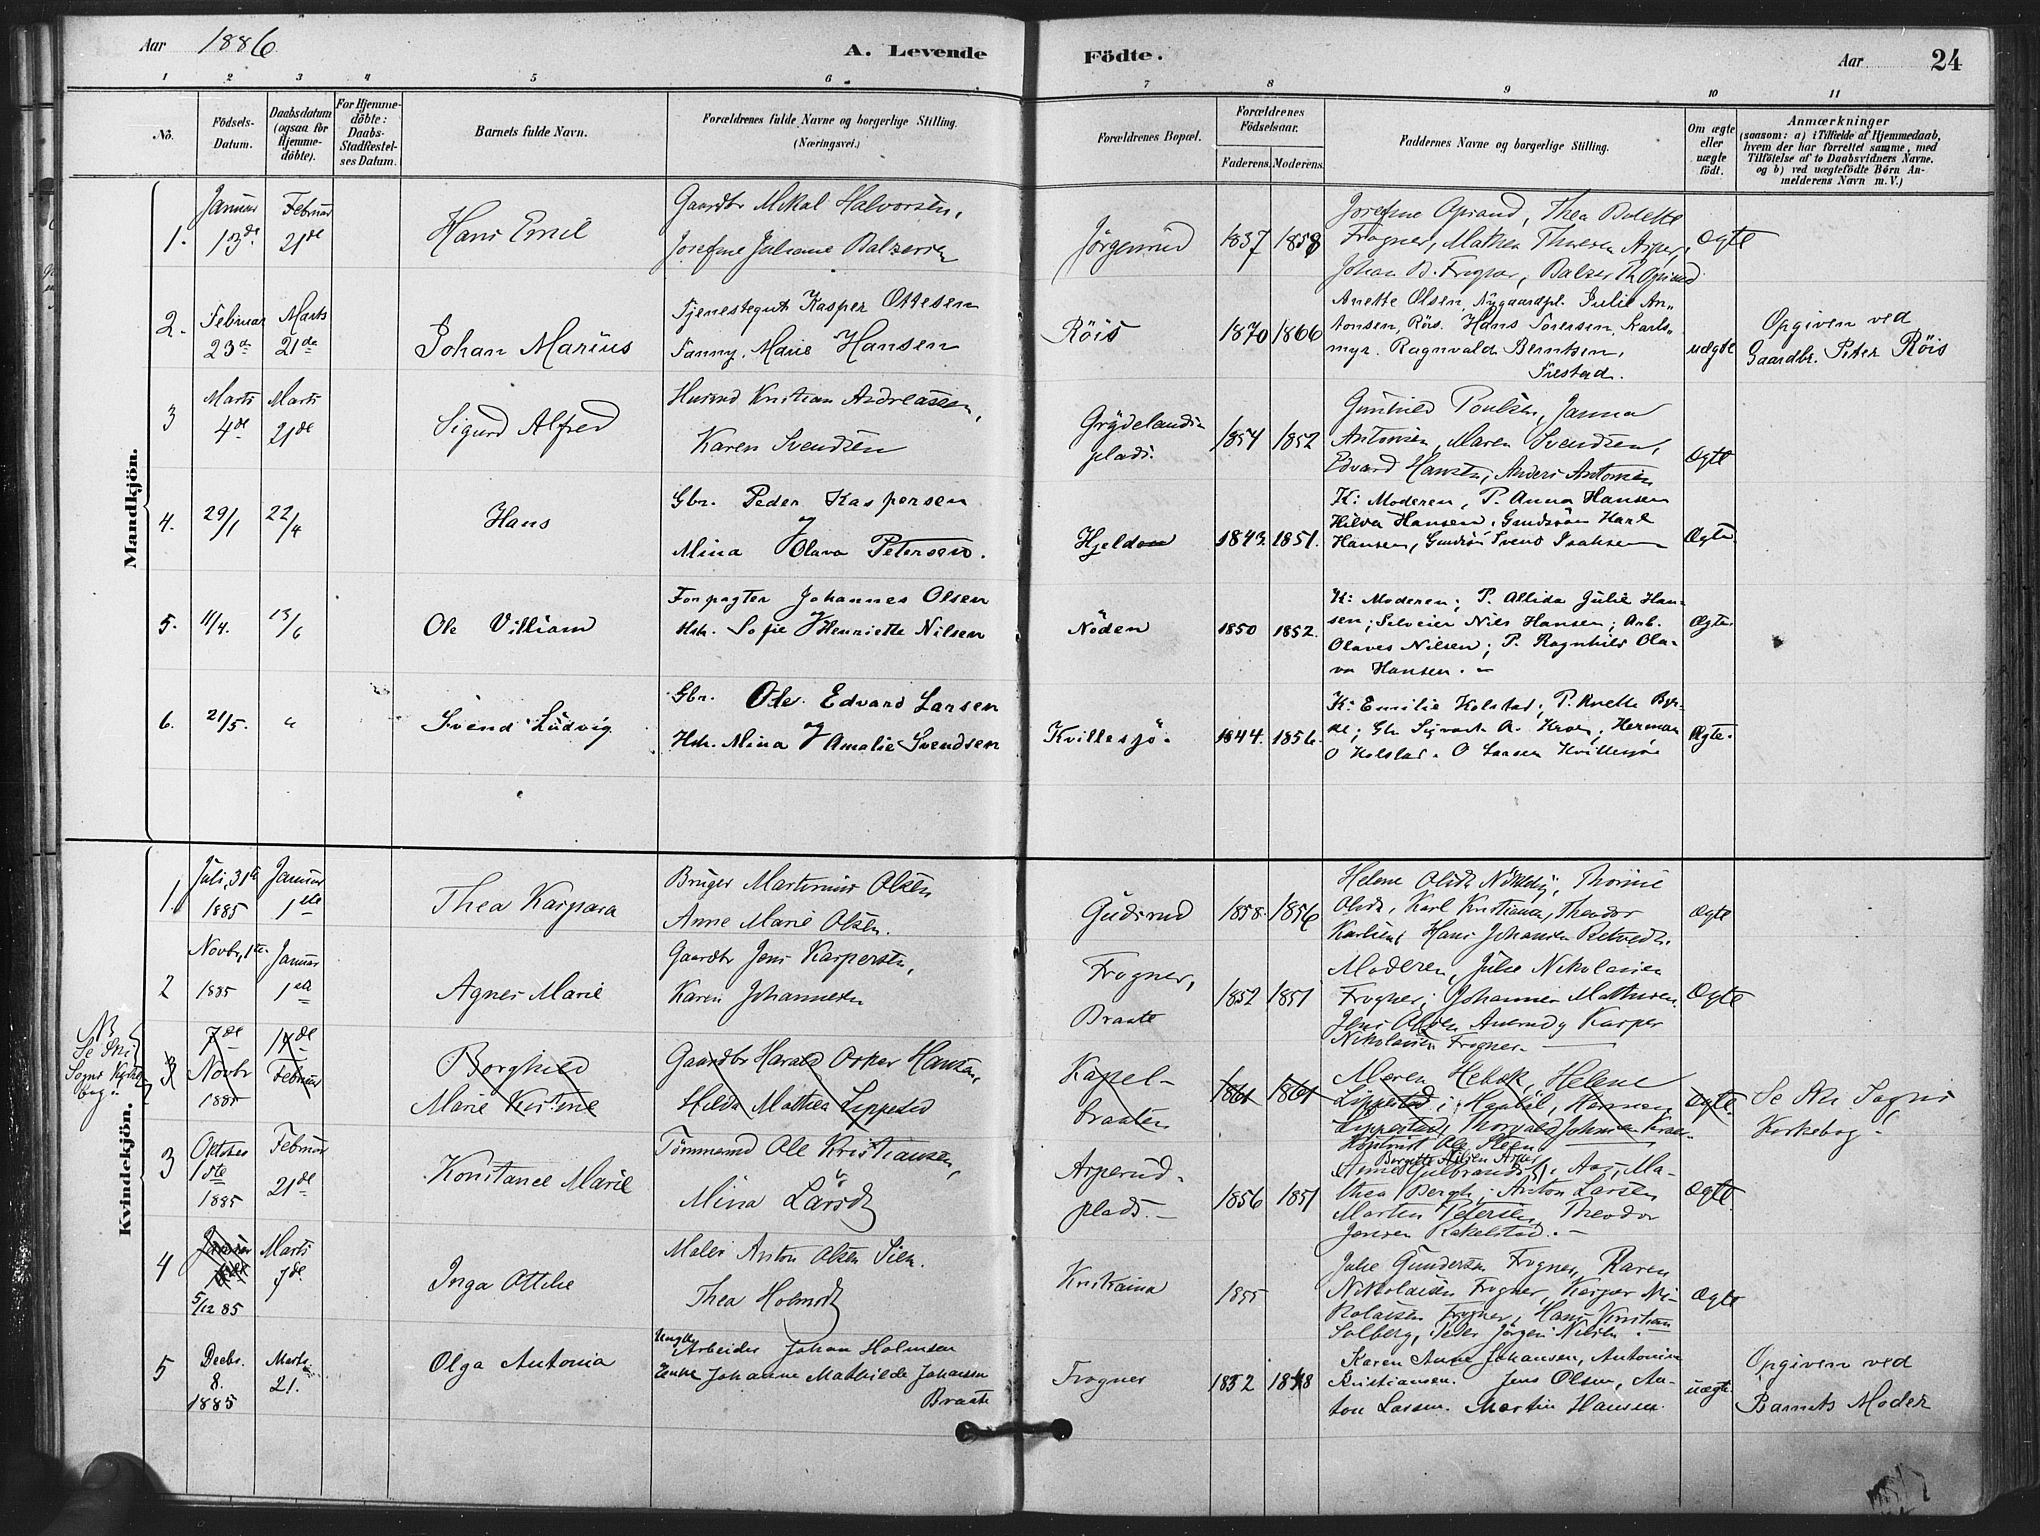 Aar 1886
A. Levende
Födte.
Aar
24
1 2 3 4 5 6 7 8 9 10 11
No.
Födsels-Datum.
Daabsdatum (ogsaa for Hjemme-döbte).
For Hjemme-döbte: Daabs-Stadfæstel-ses Datum.
Barnets fulde Navn.
Forældrenes fulde Navne og borgerlige Stilling.
(Næringsvei.)
Forældrenes Bopæl.
Forældrenes Födselsaar.
Faderens. Moderens.
Faddernes Navne og borgerlige Stilling.
Om ægte eller uægte födt.
Anmærkninger
(saasom: a) i Tilfælde af Hjemmedaab,
hvem der har forrettet samme, med
Tilföielse af to Daabsvidners Navne.
og b) ved uægtefödte Börn An-
melderens Navn m. V.)
Mandkjön.
1. Januar 13de Februar 21de
Hans Emil
Gaardbr Mikal Halvorsen,
Josefine Juliane Balzersen
Jörgenrud 1837 1858
Josefine Opsand, Thea Bolette
Frogner, Mathea Thoresen Asper,
Johan B. Frogner, Balzer Th Opsand
Ægte
2. Februar 23de Marts 21de
Johan Marius
Tjenestegut Kasper Ottesen
Fanny Marie Hansen
Röis 1870 1866
Anette Olsen, Nygaardpl. Julie An-
tonsen, Röis. Hans Sorensen, Karls-
myr. Ragnvald Berntsen,
uægte
Opgiven ved
Gaardbr. Peter Röis
3 Marts 4de Marts 21de
Sigurd Alfred
Husmd Kristian Andreassen,
Karen Svendsen
Grydelands-
plads. 1854 1852
Gunhild Poulsen, Janna
Antonsen, Maren Svendsen,
Edvard Hansen, Anders Antonsen
Ægte
4. 29/1 22/4
Hans
Gbr. Peder Kaspersen
Mina Olava Petersen.
Hjeldon 1843 1851.
K: Moderen, P. Anna Hansen
Hilda Hansen, Gaardsön Karl
Hansen, Gaardsön Svend Isaksen
Ægte
5. 11/4. 13/6
Ole Villiam
Forpagter Johannes Olsen
Hstr. Sofie Henriette Nilsen
Nöden 1850 1852.
K: Moderen; P. Allida Julie Han-
sen; Selveier Nils Hansen; Arb.
Olaves Nilsen; P. Ragnhild Ola-
va Hansen. –
Ægte
6. 21/5. "
Svend Ludvig
Gbr. Ole Edvard Larsen
Hstr. Mina Amalie Svendsen
Kvillesjö. 1844. 1856.
K: Emilie Kolstad; P. Anette
Gbr Sigvart A. Kroer; Herman
O Kolstad. O Larsen Kvillesjö
Ægte.
Kvindekjön.
1. Juli, 31te 1885 Januar 1ste
Thea Kaspara
Bruger Martinius Olsen
Anne Marie Olsen.
Gudsrud 1858 1856
Helene Olsdtr
Olsdtr, Karl Kristiansen, Theodor
Karlsen, Hans Johansen
Ægte
2 Novbr, 1te 1885 Januar 1ste
Agnes Marie
Gaardbr Jens Kaspersen,
Karen Johannesen
Frogner,
Braate 1852 1851
Moderen, Julie Nikolaisen
Frogner, Johannes Mathisen
Jens Olsen Kasper
Nikolaisen Frogner –
Ægte
3 7de Novbr 1885 14de Februar
Borghild
Marie Kirstine
Gaardbr Harald Oskar Hansen,
Hilda Mathea Lippestad
Kapel-
braaten 1861 1861
Maren Hebek, Helene
Lippestad
Lippestad, Thorvald Johnsen
Ægte.
Se Ski Sogns
Kirkebog.
3 Oktober 1ste 1885 Februar 21de
Konstance Marie
Tömmermd Ole Kristiansen,
Mina Larsdtr
Asperud-
plads. – 1856 1851
Birgitte Nilsen Asper
Anne Gulbrandsdtr, Aas, Ma-
thea Bergh, Anton Larsen
Martin Petersen, Theodor
Jensen Rakelstad. –
Ægte
4 5/12 85 Marts 7de
Inga Ottilie
Maler Anton Olsen Sien
Thea Holmsdtr
Kristiania 1855
Julie Gundersen Frogner, Karen
Nikolaisen Frogner, Kasper Ni-
kolaisen Frogner, Hans Kristian
Solberg, Peder Jörgen Nilsen. –
Ægte
5 Decbr. 8. 1885 Marts 21.
Olga Antonia
Ungk. Arbeider Johan Holmsen
Enke Johanne Mathilde Johansen
Braate
Frogner 1852 1848
Karen Anne Johansen, Antonia
Kristiansen. Jens Olsen, An-
ton Larsen. Martin Hansen.
uægte
Opgiven ved
Barnets Moder